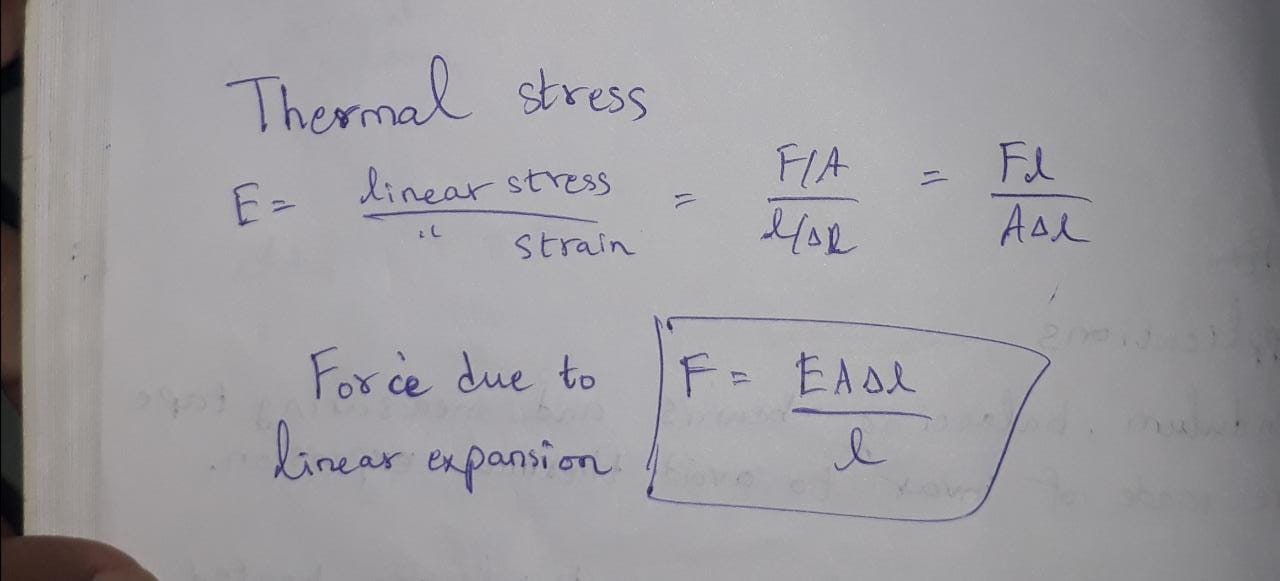 Thermal stress
E = linear stress / " strain = F/A / l/Δl = Fl / AΔl
Force due to linear expansion
F = EAΔl / l